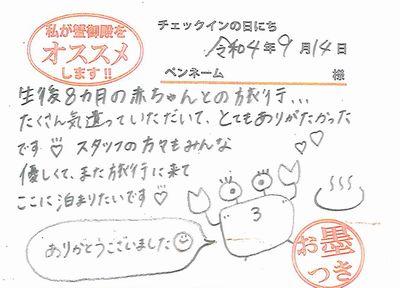 私が蟹御殿を
オススメ
します!!
チェックインの日にち
令和4年9月14日
ペンネーム 様
生後8カ月の赤ちゃんとの旅行...
たくさん気遣っていただいて、とてもありがたかった
です♡ スタッフの方々もみんな
優しくて、また旅行に来て
ここに泊まりたいです♡
ありがとうございました
お墨
つき